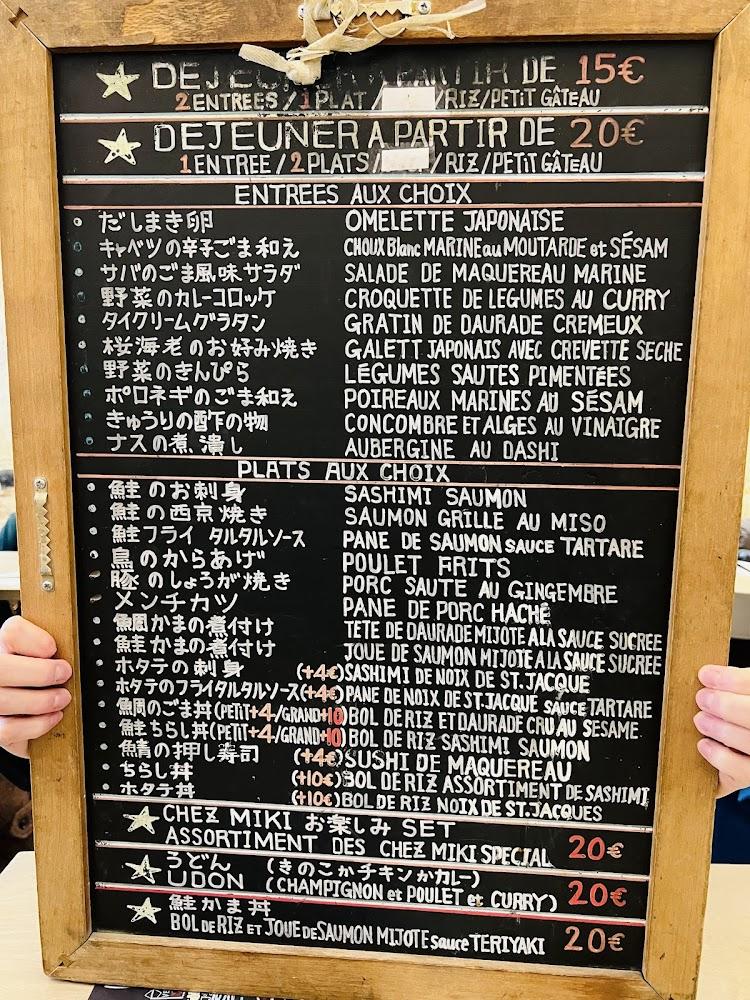 DEJEUNER A PARTIR DE 15€
2 ENTREES / 1 PLAT / /RIZ/PETIT GÂTEAU
DEJEUNER A PARTIR DE 20€
1 ENTREE / 2 PLATS / /RIZ/PETIT GÂTEAU
ENTREES AUX CHOIX
だしまき卵 OMELETTE JAPONAISE
キャベツの辛子ごま和え CHOUX Blanc MARINE au MOUTARDE et SÉSAM
サバのごま風味サラダ SALADE DE MAQUEREAU MARINE
野菜のカレーコロッケ CROQUETTE DE LEGUMES AU CURRY
タイクリームグラタン GRATIN DE DAURADE CREMEUX
桜海老のお好み焼き GALETT JAPONAIS AVEC CREVETTE SECHE
野菜のきんぴら LÉGUMES SAUTES PIMENTÉES
ポロネギのごま和え POIREAUX MARINES AU SÉSAM
きゅうりの酢の物 CONCOMBRE ET ALGES AU VINAIGRE
ナスの煮潰し AUBERGINE AU DASHI
PLATS AUX CHOIX
鮭のお刺身 SASHIMI SAUMON
鮭の西京焼き SAUMON GRILLE AU MISO
鮭フライ タルタルソース PANE DE SAUMON SAUCE TARTARE
鳥のからあげ POULET FRITS
豚のしょうが焼き PORC SAUTE AU GINGEMBRE
メンチカツ PANE DE PORC HACHÉ
鯛かまの煮付け TETE DE DAURADE MIJOTE A LA SAUCE SUCREE
鮭かまの煮付け JOUE DE SAUMON MIJOTE A LA SAUCE SUCREE
ホタテの刺身 (+4€) SASHIMI DE NOIX DE ST. JACQUE
ホタテのフライタルタルソース(+4€) PANE DE NOIX DE ST. JACQUE SAUCE TARTARE
鯛のごま丼(PETIT+4/GRAND+10) BOL DE RIZ ET DAURADE CRU AU SESAME
鮭ちらし丼(PETIT+4/GRAND+10) BOL DE RIZ SASHIMI SAUMON
鯖の押し寿司 (+4€) SUSHI DE MAQUEREAU
ちらし丼 (+10€) BOL DE RIZ ASSORTIMENT DE SASHIMI
ホタテ丼 (+10€) BOL DE RIZ NOIX DE ST. JACQUES
CHEZ MIKI お楽しみ SET
ASSORTIMENT DES CHEZ MIKI SPECIAL 20€
うどん (きのこかチキンかカレー)
UDON (CHAMPIGNON et POULET et CURRY) 20€
鮭かま丼
BOL DE RIZ ET JOUE DE SAUMON MIJOTE sauce TERIYAKI 20€